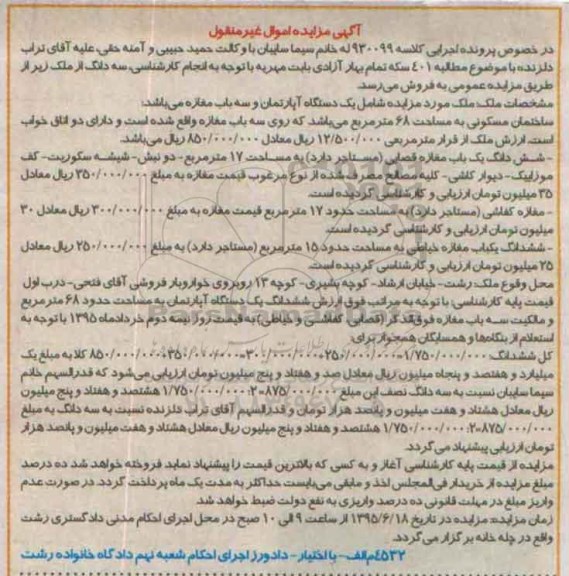 آگهی مزایده اموال غیرمنقول
در خصوص پرونده اجرایی کلاسه ۹۳۰۰۹۹ له خانم سیما سایبان با وکالت حمید حبیبی و آمنه حقی، علیه آقای تراب
دلزنده با موضوع مطالبه ۴۰۱ سکه تمام بهار آزادی بابت مهریه با توجه به انجام کارشناسی، سه دانگ از ملک زیر از
طریق مزایده عمومی به فروش می‌رسد.
مشخصات ملک: ملک مورد مزایده شامل یک دستگاه آپارتمان و سه باب مغازه می‌باشد:
ساختمان مسکونی به مساحت ۶۸ مترمربع می‌باشد. که روی سه باب مغازه واقع شده است و دارای دو اتاق خواب
است. ارزش ملک از قرار مترمربعی ۱۲/۵۰۰/۰۰۰ ریال معادل ۸۵۰/۰۰۰/۰۰۰ ریال می‌باشد.
- شش دانگ یک باب مغازه قصابی (مستاجر دارد) به مساحت ۱۷ مترمربع- دو نبش- شیشه سکوریت- کف
موزاییک- دیوار کاشی- کلیه مصالح مصرف شده از نوع مرغوب قیمت مغازه به مبلغ ۳۵۰/۰۰۰/۰۰۰ ریال معادل
۳۵ میلیون تومان ارزیابی و کارشناسی گردیده است.
- مغازه کفاشی (مستاجر دارد) به مساحت حدود ۱۷ مترمربع قیمت مغازه به مبلغ ۳۰۰/۰۰۰/۰۰۰ ریال معادل ۳۰
میلیون تومان ارزیابی و کارشناسی گردیده است.
- ششدانگ یکباب مغازه خیاطی به مساحت حدود ۱۵ مترمربع (مستاجر دارد) به مبلغ ۲۵۰/۰۰۰/۰۰۰ ریال معادل
۲۵ میلیون تومان ارزیابی و کارشناسی گردیده است.
محل وقوع ملک: رشت- خیابان ارشاد- کوچه بشیری- کوچه ۱۳ روبروی خواروبار فروشی آقای فتحی- درب اول
قیمت پایه کارشناسی: با توجه به مراتب فوق ارزش ششدانگ یک دستگاه آپارتمان به مساحت حدود ۶۸ مترمربع
و مالکیت سه باب مغازه فوق‌الذکر (قصابی، کفاشی و خیاطی) به قیمت روز نیمه دوم خردادماه ۱۳۹۵ با توجه به
استعلام از بنگاه‌ها و همسایگان همجوار برای:
کل ششدانگ: ۱/۷۵۰/۰۰۰/۰۰۰=۲۵۰/۰۰۰/۰۰۰+۳۰۰/۰۰۰/۰۰۰+۳۵۰/۰۰۰/۰۰۰+۸۵۰/۰۰۰/۰۰۰ کلا به مبلغ یک
میلیارد و هفتصد و پنجاه میلیون ریال معادل صد و هفتاد و پنج میلیون تومان ارزیابی می‌شود که قدرالسهم خانم
سیما سایبان نسبت به سه دانگ نصف این مبلغ ۸۷۵/۰۰۰/۰۰۰=۲÷۱/۷۵۰/۰۰۰/۰۰۰ هشتصد و هفتاد و پنج میلیون
ریال معادل هشتاد و هفت میلیون و پانصد هزار تومان و قدرالسهم آقای تراب دلزنده نسبت به سه دانگ به مبلغ
۸۷۵/۰۰۰/۰۰۰=۲÷۱/۷۵۰/۰۰۰/۰۰۰ هشتصد و هفتاد و پنج میلیون ریال معادل هشتاد و هفت میلیون و پانصد هزار
تومان ارزیابی پیشنهاد می گردد.
مزایده از قیمت پایه کارشناسی آغاز و به کسی که بالاترین قیمت را پیشنهاد نماید فروخته خواهد شد ده درصد
مبلغ مزایده از خریدار فی‌المجلس اخذ و مابقی می‌بایست حداکثر به مدت یک ماه پرداخت گردد. در صورت عدم
واریز مبلغ در مهلت قانونی ده درصد واریزی به نفع دولت ضبط خواهد شد.
زمان مزایده: مزایده در تاریخ ۱۳۹۵/۶/۱۸ از ساعت ۹ الی ۱۰ صبح در محل اجرای احکام مدنی دادگستری رشت
واقع در چله خانه برگزار می گردد.
۴۵۳۲م‌الف- بااختیار- دادورز اجرای احکام شعبه نهم دادگاه خانواده رشت